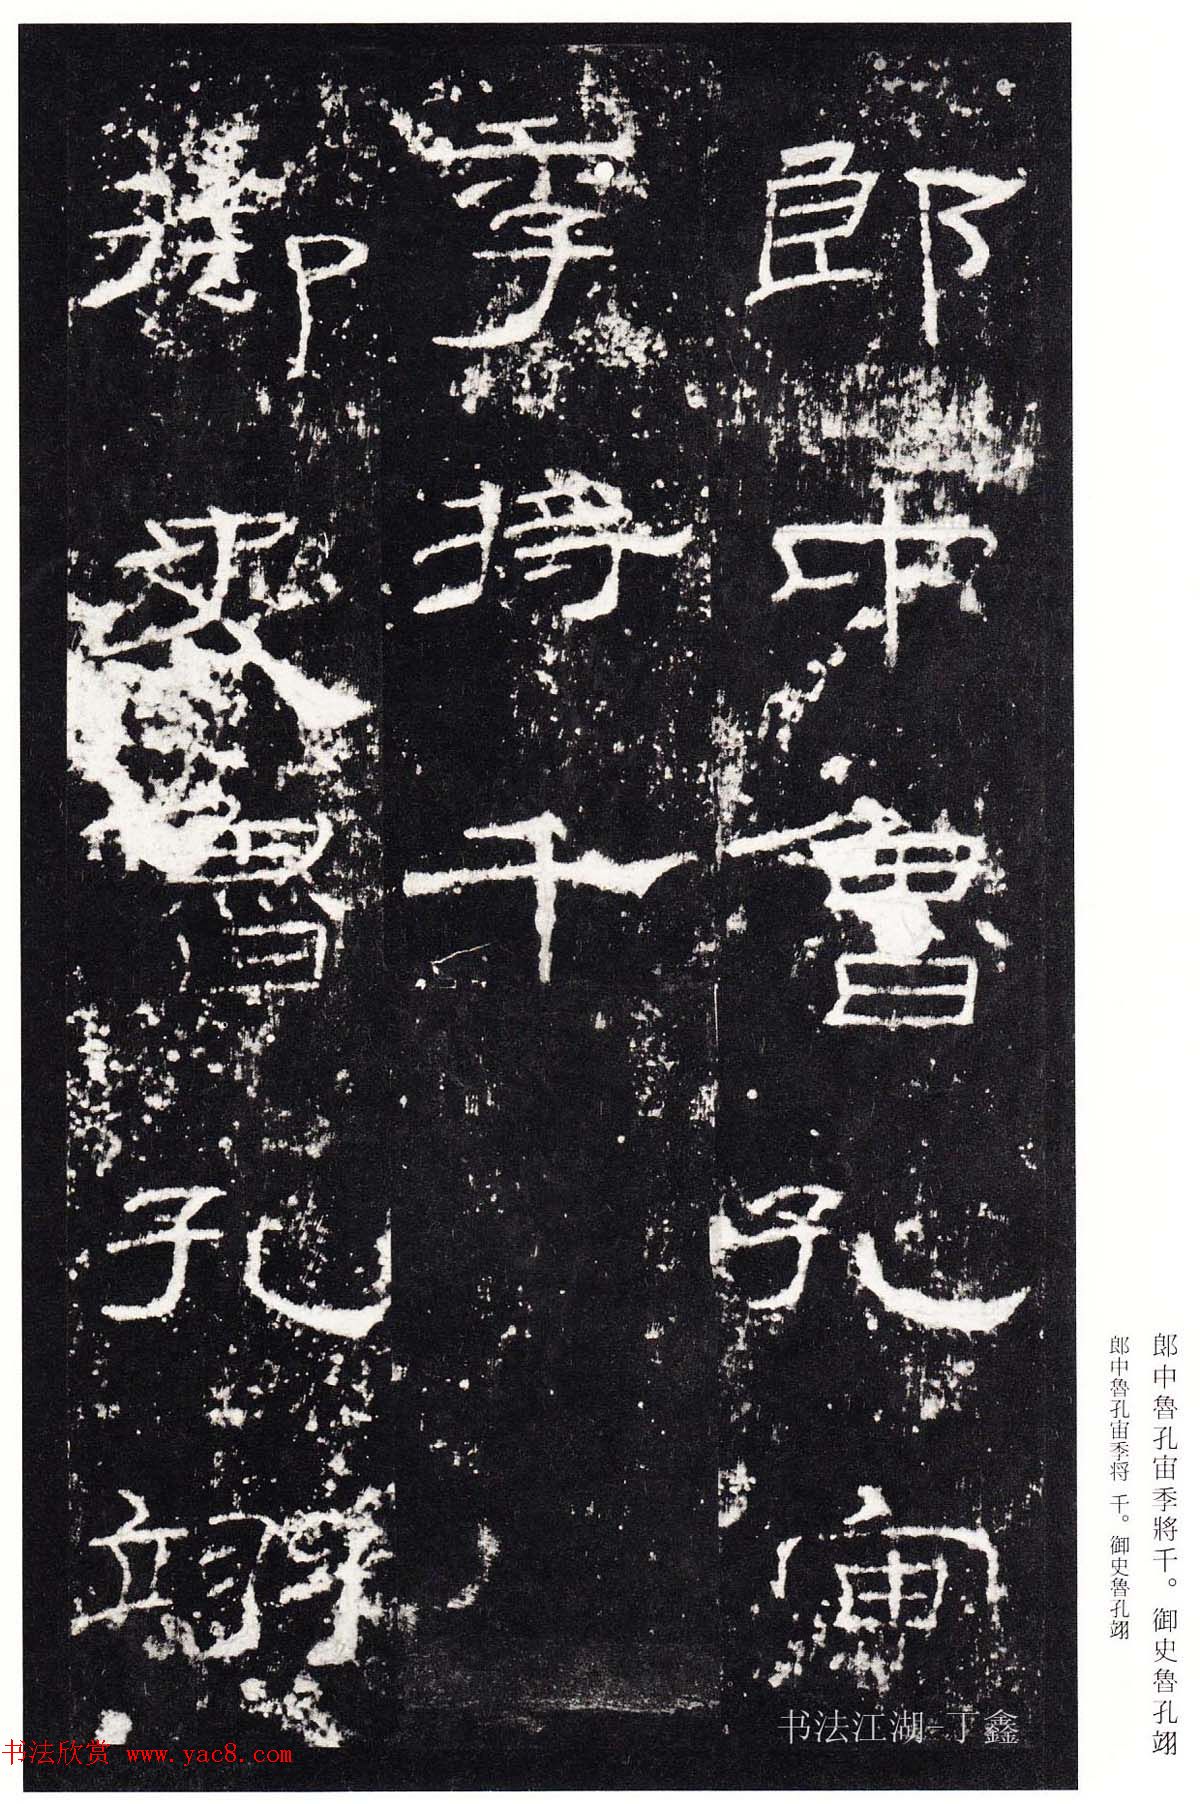 郎中魯孔宙
季將千
御史魯孔翊
郎中魯孔宙季將千。御史魯孔翊
郎中魯孔宙季将 千。御史魯孔翊
书法江湖—丁鑫
书法欣赏 www.yac8.com